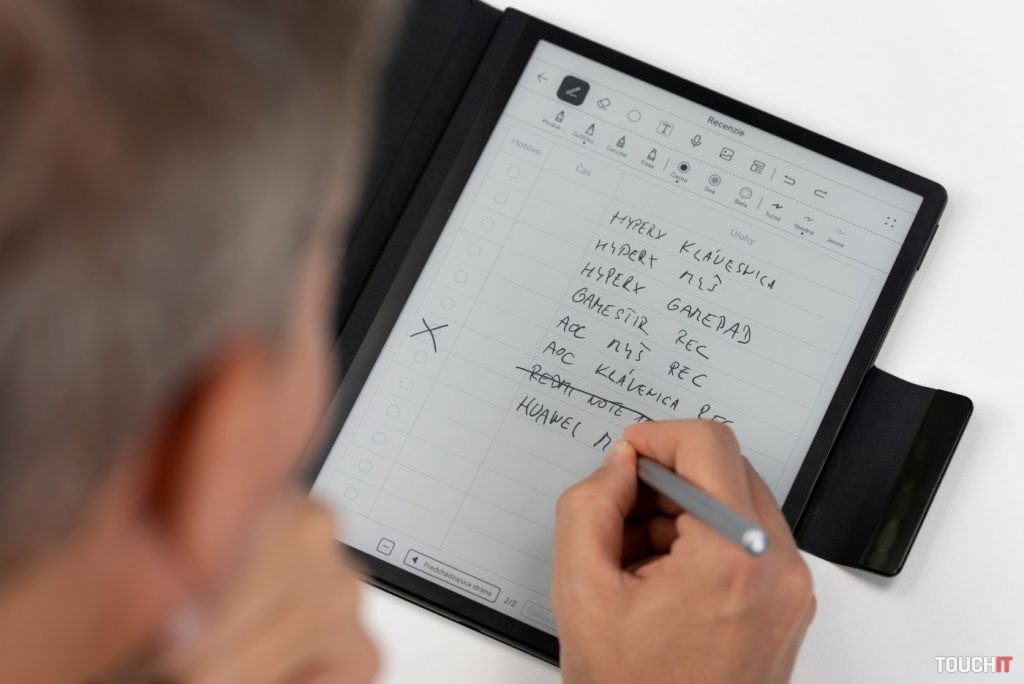 Recenzie
Guľôčko...
Ceruzka
Fixka
Čierna
Sivá
Biela
Tučné
Stredné
Jemné
Hotovo
Čas
Úlohy
HYPERX KLÁVESNICA
HYPERX MYŠ
HYPERX GAMEPAD
GAMESTIR REC
AOC MYŠ REC
AOC KLÁVENICA REC
REDMI NOTE
HUAWEI M
Predchádzajúca strana
2/2
Ďalšia
TOUCHIT